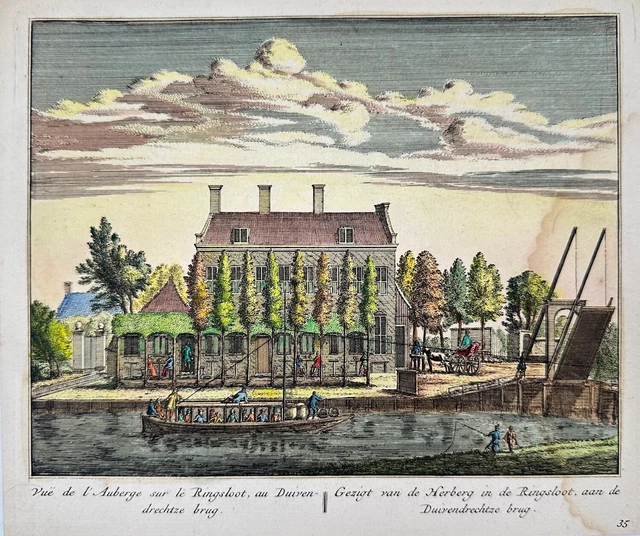 Vuë de l'Auberge sur le Ringsloot, au Duiven-
drechtze brug.
Gezigt van de Herberg in de Ringsloot, aan de
Duivendrechtze brug.
35